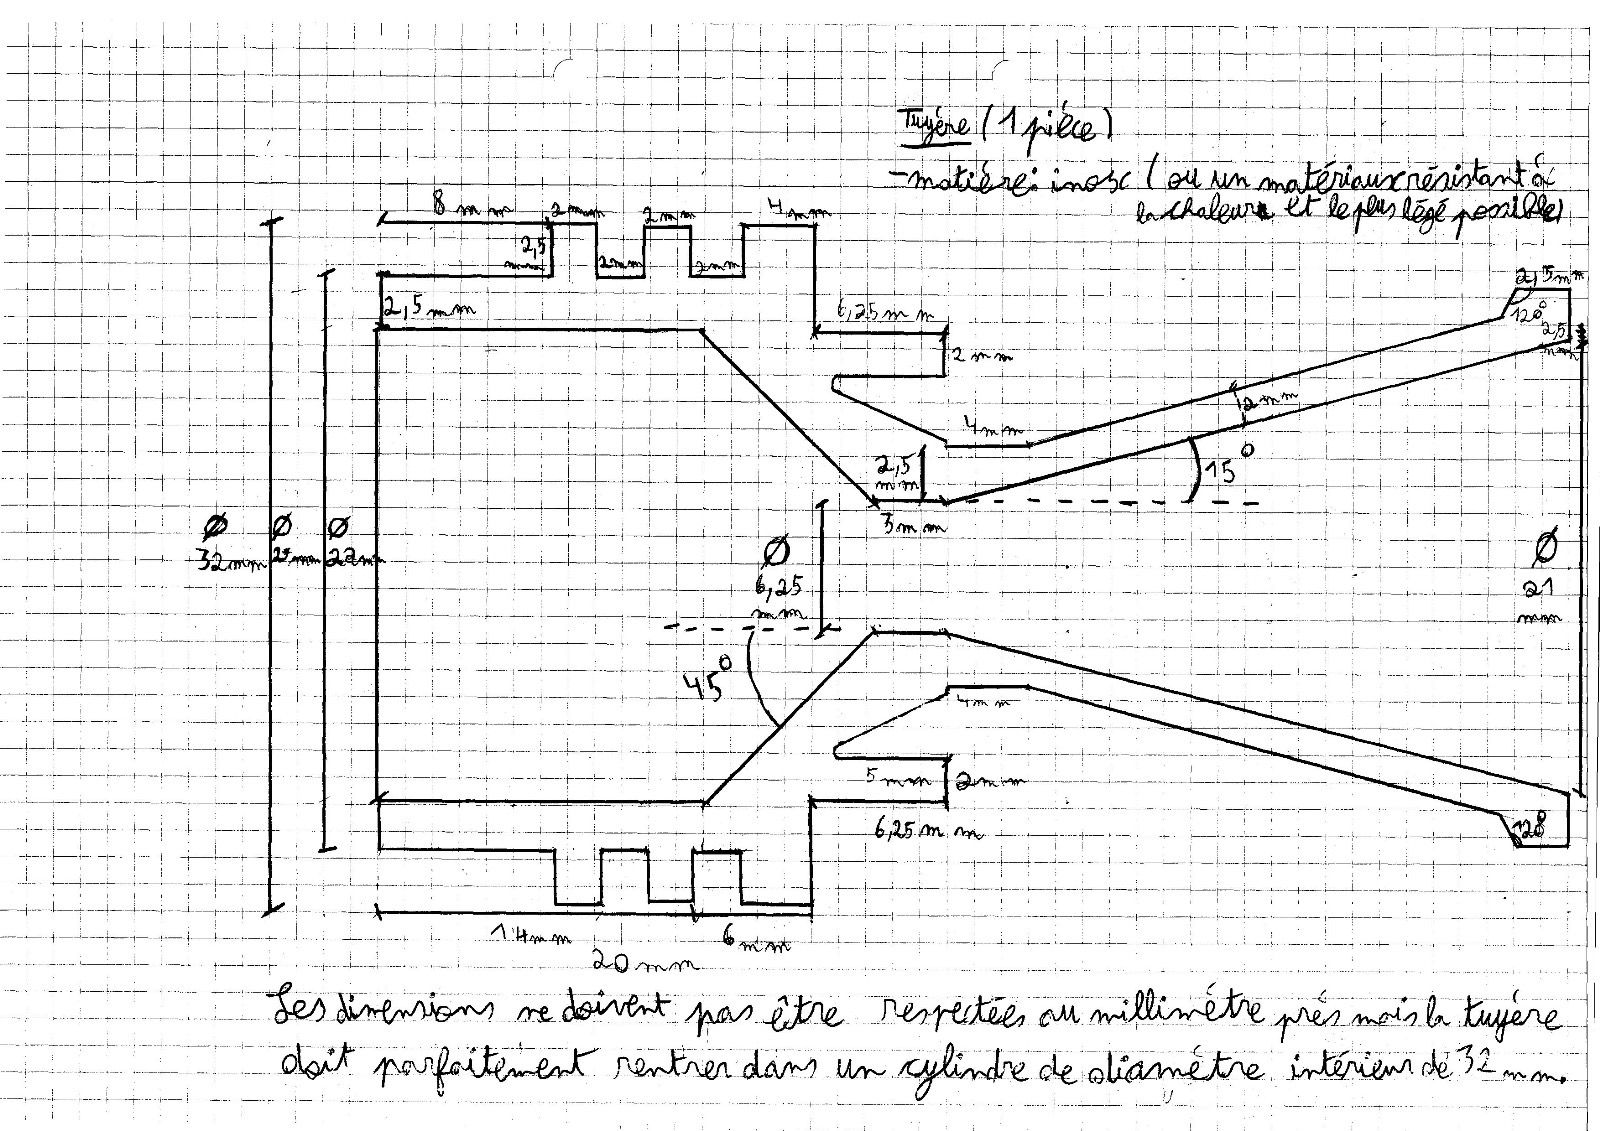 Tuyére (1 piéce)
- matiére: inosc (ou un matériaux résistant à
la chaleur et le plus légé possible)
8 mm 2mm 2mm 4mm
2,5 mm
2mm 2mm
2,5 mm
6,25 mm
2 mm
2,5mm
120°
2,5 mm
2mm
4mm
2,5 mm
15°
3mm
Ø 32mm
Ø 27mm
Ø 22mm
Ø 6,25 mm
Ø 21 mm
45°
4mm
5 mm
2mm
6,25 mm
120°
14mm
6mm
20mm
Les dimensions ne doivent pas être respectées au millimétre prés mais la tuyére
doit parfaitement rentrer dans un cylindre de diamétre intérieur de 32 mm.